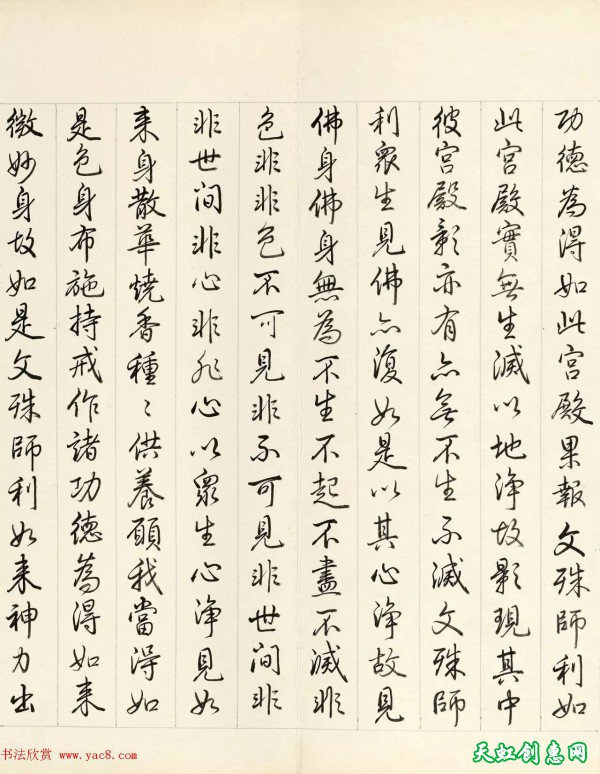 功德為得如此宮殿果報文殊師利如
此宮殿實無生滅以地淨故影現其中
彼宮殿影亦有亦無不生不滅文殊師
利眾生見佛亦復如是以其心淨故見
佛身佛身無為不生不起不盡不滅非
色非非色不可見非不可見非世間非
非世間非心非非心以眾生心淨見如
来身散華燒香種〻供養願我當得如
是色身布施持戒作諸功德為得如来
微妙身故如是文殊師利如来神力出
书法欣赏 www.yac8.com
天虹创惠网